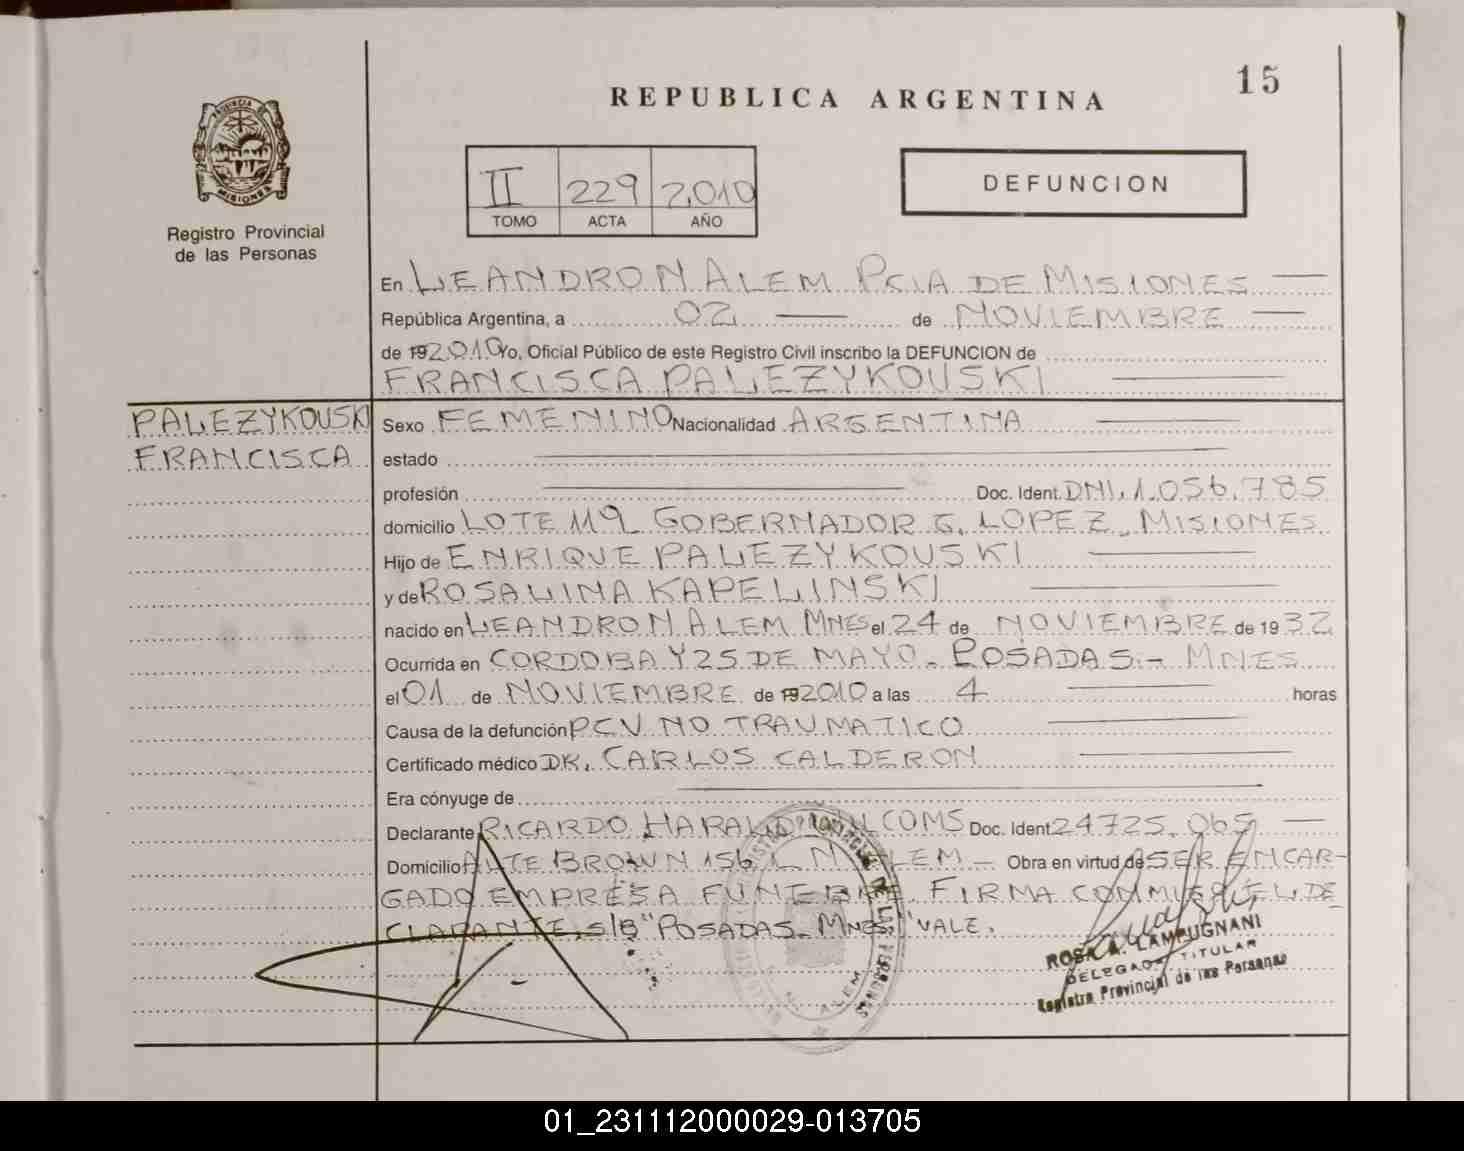 15
REPUBLICA ARGENTINA
PROVINCIA DE MISIONES
Registro Provincial
de las Personas
II 229 2,010
TOMO ACTA AÑO
DEFUNCION
En LEANDRO N ALEM PCIA DE MISIONES
República Argentina, a 02 de NOVIEMBRE
de 192010 Yo, Oficial Público de este Registro Civil inscribo la DEFUNCION de
FRANCISCA PALEZYKOUSKI
PALEZYKOUSKI
FRANCISCA
Sexo FEMENINO Nacionalidad ARGENTINA
estado
profesión Doc. Ident. DNI. 1.056.785
domicilio LOTE 119 GOBERNADOR G. LOPEZ - MISIONES
Hijo de ENRIQUE PALEZYKOUSKI
y de ROSALINA KAPELINSKI
nacido en LEANDRO N ALEM MNES el 24 de NOVIEMBRE de 1932
Ocurrida en CORDOBA Y 25 DE MAYO - POSADAS - MNES
el 01 de NOVIEMBRE de 192010 a las 4 horas
Causa de la defunción PCV NO TRAUMATICO
Certificado médico DR. CARLOS CALDERON
Era cónyuge de
Declarante RICARDO HARALD Doc. Ident 24725.065
Domicilio ALTE BROWN 156 L. N ALEM - Obra en virtud de SER ENCAR-
GADO EMPRESA FUNEBRE. FIRMA CONMIGO EL DE
CLARANTE, S/B "POSADAS - MNES" VALE.
ROSA A. LAMPUGNANI
DELEGADA TITULAR
Registro Provincial de las Personas
01_231112000029-013705